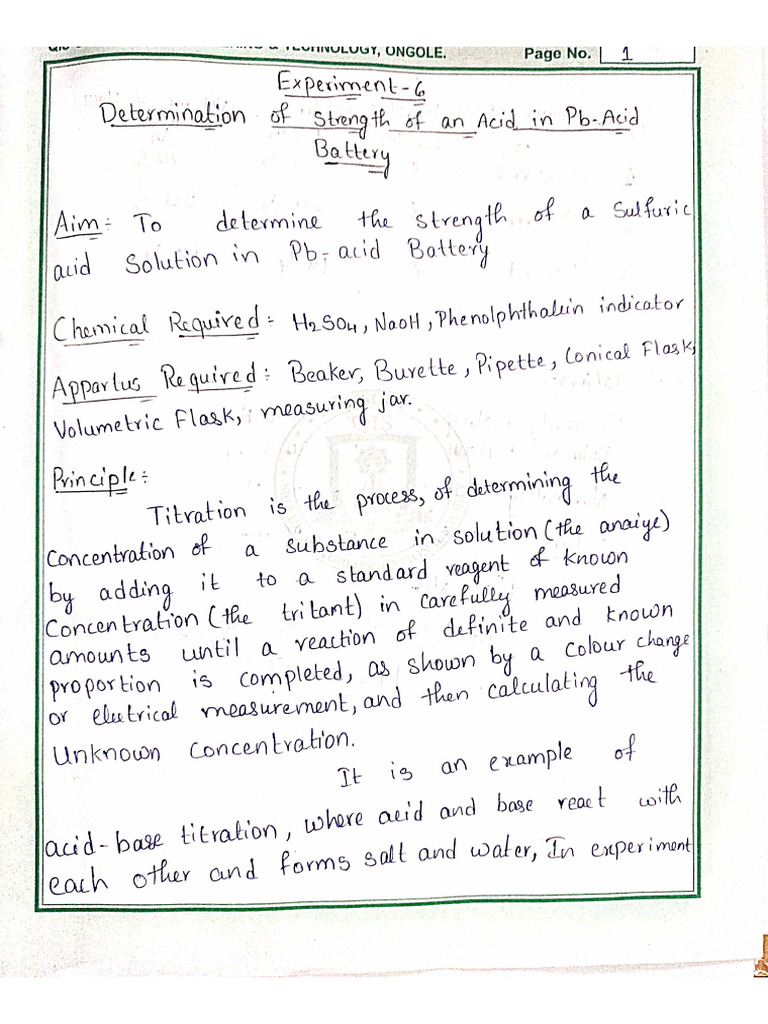 & TECHNOLOGY, ONGOLE.
Page No. 1
Experiment-6
Determination of Strength of an Acid in Pb-Acid
Battery
Aim:- To determine the strength of a Sulfuric
acid Solution in Pb-acid Battery
Chemical Required:- H2SO4, NaOH, Phenolphthalein indicator
Appartus Required:- Beaker, Burette, Pipette, Conical Flask,
Volumetric Flask, measuring jar.
Principle:-
Titration is the process, of determining the
Concentration of a substance in solution (the anaiye)
by adding it to a standard reagent of known
Concentration (the tritant) in carefully measured
amounts until a reaction of definite and known
proportion is completed, as shown by a colour change
or eletrical measurement, and then calculating the
Unknown Concentration.
It is an example of
acid-base titration, where acid and base react with
each other and forms salt and water, In experiment